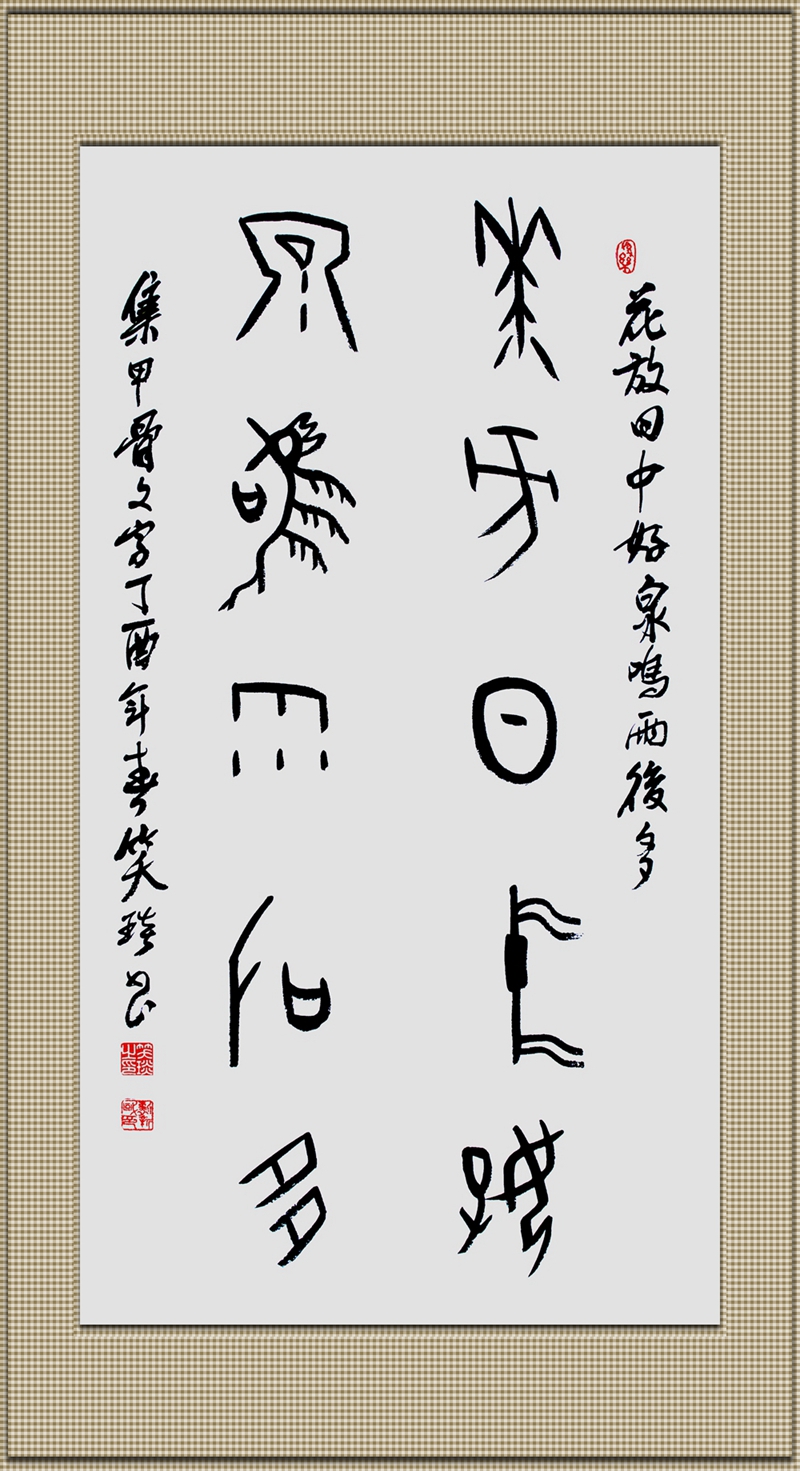 花放日中好泉鳴雨後多
花放日中好
泉鳴雨後多
集甲骨文字丁酉年春笑琰